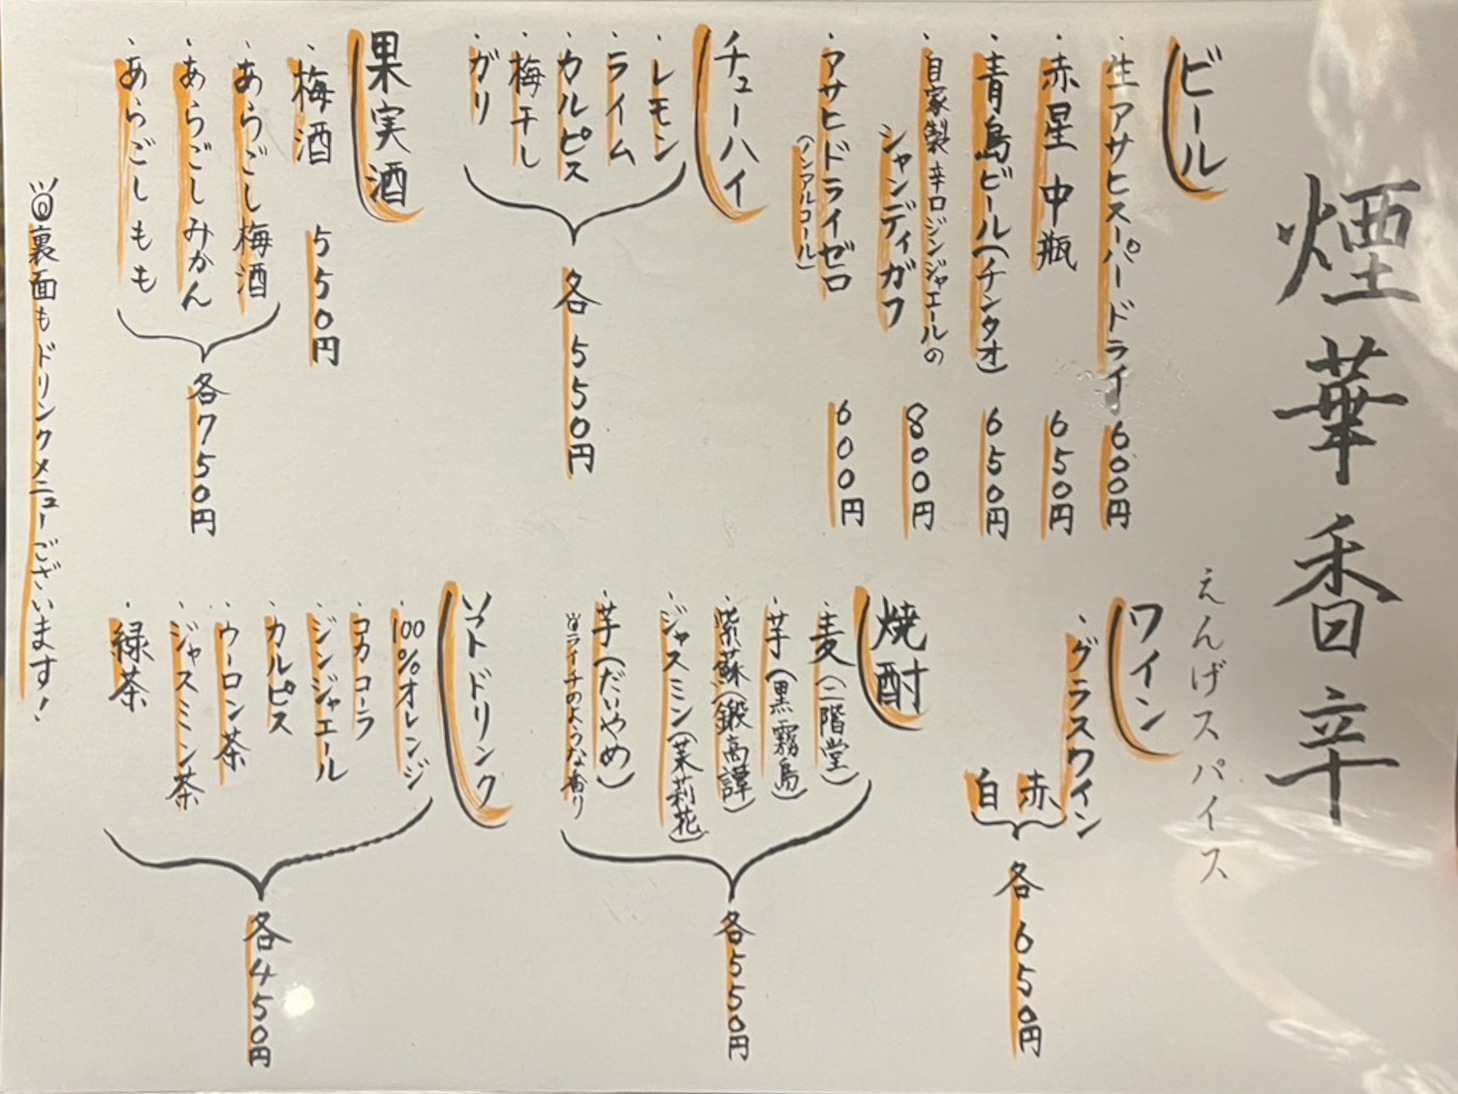 煙華香辛
えんげスパイス
ビール
・生アサヒスーパードライ 600円
・赤星 中瓶 650円
・青島ビール(チンタオ) 650円
・自家製辛口ジンジャエールの
シャンディガフ 800円
・アサヒドライゼロ 600円
(ノンアルコール)
チューハイ
・レモン
・ライム
・カルピス
・梅干し
・ガリ
各550円
果実酒
・梅酒 550円
・あらごし梅酒
・あらごしみかん
・あらごしもも
各750円
ワイン
・グラスワイン
赤
白
各650円
焼酎
・麦(二階堂)
・芋(黒霧島)
・紫蘇(鍛高譚)
・ジャスミン(茉莉花)
・芋(だいやめ)
※ライチのような香り
各550円
ソフトドリンク
・100%オレンジ
・コカコーラ
・ジンジャエール
・カルピス
・ウーロン茶
・ジャスミン茶
・緑茶
各450円
裏面もドリンクメニューございます!